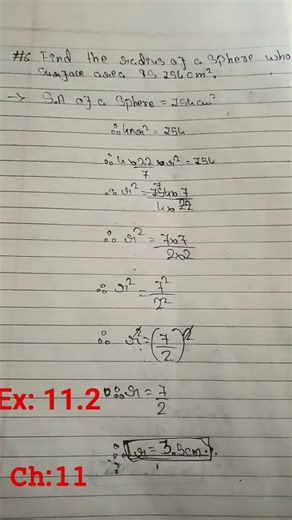 #6 Find the radius of a sphere who
surface area is 154 cm².
→ S.A of a sphere = 154 cm²
∴ 4πr² = 154
∴ 4 × 22/7 × r² = 154
∴ r² = 154 × 7 / 4 × 22
∴ r² = 7×7 / 2×2
∴ r² = 7² / 2²
∴ r² = (7/2)²
Ex: 11.2
∴ r = 7/2
∴ r = 3.5cm.
Ch:11